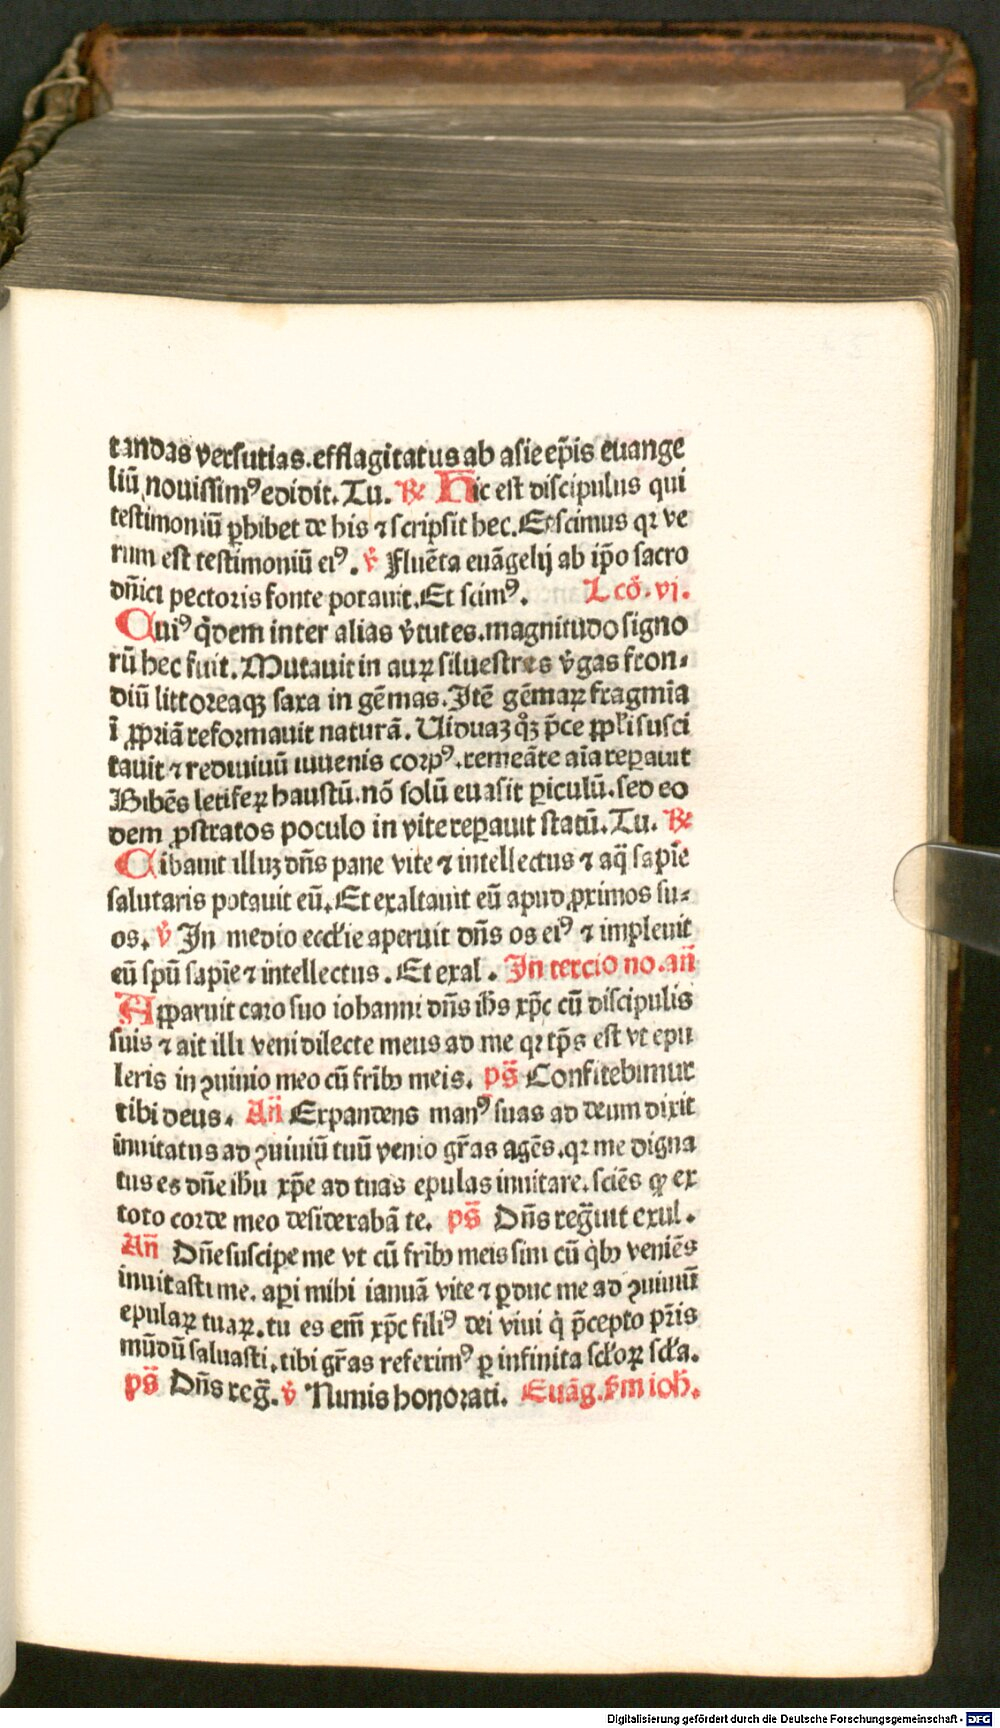 tandas versutias. efflagitatus ab asie ep̃is euange
liũ nouissimꝰ edidit. Tu. ℟ Hic est discipulus qui
testimoniũ ꝑhibet de his ⁊ scripsit hec. Et scimus qꝛ ve
rum est testimoniũ eiꝰ. ℣ Fluẽta euãgelij ab ip̃o sacro
dñici pectoris fonte potauit. Et scimꝰ. Lcõ. vj.
Cuiꝰ q̇dem inter alias v̓tutes. magnitudo signo
rũ hec fuit. Mutauit in auꝝ siluestres v̓gas fron⸗
diũ littoreaqꝫ saxa in gẽmas. Itẽ gẽmaꝝ fragmĩa
ĩ ꝓpriã reformauit naturã. Uiduaꝫ qꝫ p̃ce ꝓpl̃i susci
tauit ⁊ rediuiuũ iuuenis corpꝰ. remeãte aĩa reꝑauit
Bibẽs letifeꝝ haustũ. nõ solũ euasit ꝑiculũ. sed eo
dem ꝓstratos poculo in vite reꝑauit statũ. Tu. ℟
Cibauit illuꝫ dñs pane vite ⁊ intellectus ⁊ aq̃ sapiẽ
salutaris potauit eũ. Et exaltauit eũ apud ꝓximos su⸗
os. ℣ In medio eccl̃ie aperuit dñs os eiꝰ ⁊ impleuit
eũ spũ sapiẽ ⁊ intellectus. Et exal. In tercio no. añ
Apparuit caro suo iohanni dñs ihs̃ xp̃c cũ discipulis
suis ⁊ ait illi veni dilecte meus ad me qꝛ tp̃s est vt epu
leris in ꝯuiuio meo cũ fr̃ibꝰ meis. ps̃ Confitebimur
tibi deus. Añ Expandens manꝰ suas ad deum dixit
inuitatus ad ꝯuiuiũ tuũ venio gr̃as agẽs. qꝛ me digna
tus es dñe ihũ xp̃e ad tuas epulas inuitare. sciẽs ꝙ ex
toto corde meo desiderabã te. ps̃ Dñs reg̃uit exul.
Añ Dñe suscipe me vt cũ fr̃ibꝰ meis sim cũ q̇bꝰ veniẽs
inuitasti me. aꝑi mihi ianuã vite ⁊ ꝑduc me ad ꝯuiuiũ
epulaꝝ tuaꝝ. tu es em̃ xp̃c filiꝰ dei viui q̇ p̃cepto pr̃is
mũdũ saluasti. tibi gr̃as referimꝰ ꝑ infinita scl̃oꝝ scl̃a.
ps̃ Dñs reg̃. ℣ Nimis honorati. Euãg. scd̃m ioh̃.
Digitalisierung gefördert durch die Deutsche Forschungsgemeinschaft - DFG